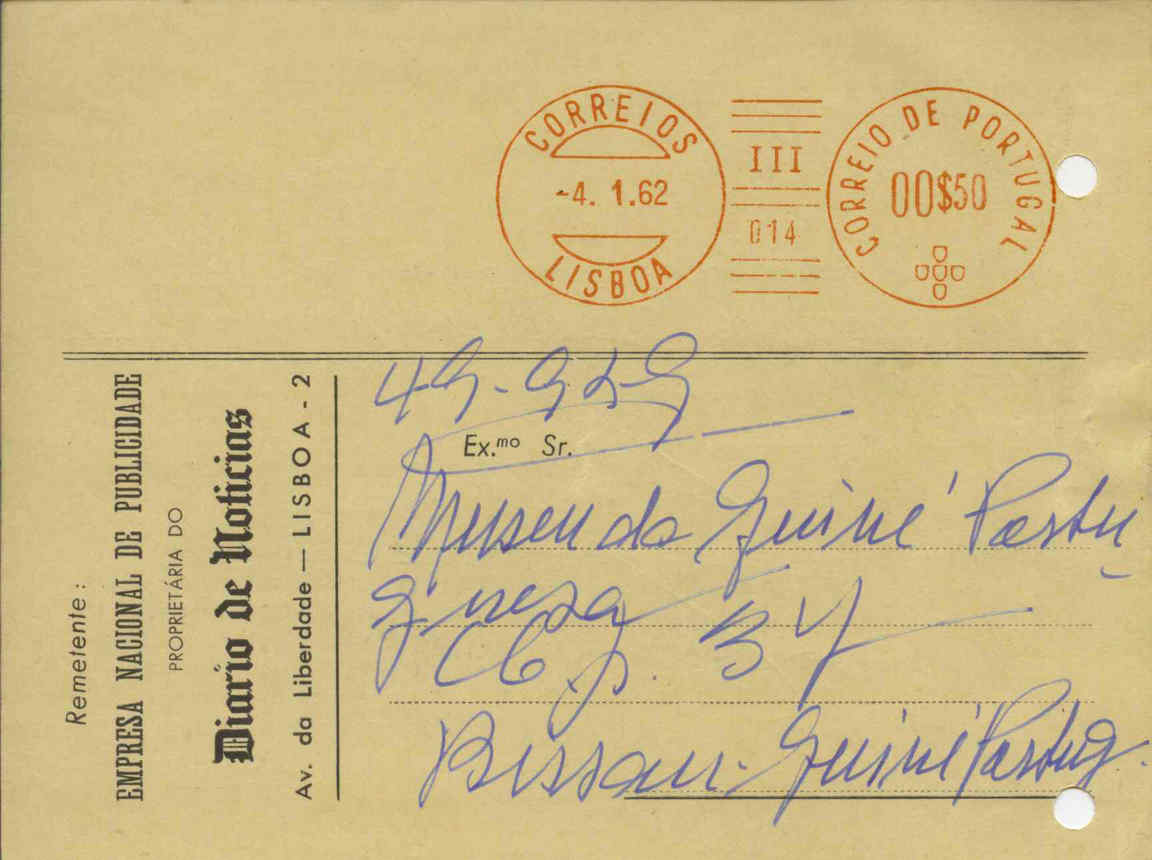 CORREIOS
-4. 1.62
LISBOA
III
014
CORREIO DE PORTUGAL
00$50
Remetente:
EMPRESA NACIONAL DE PUBLICIDADE
PROPRIETÁRIA DO
Diario de Noticias
Av. da Liberdade — LISBOA - 2
49-929
Ex.mo Sr.
Museu da Guiné Portu
guesa
C6 P. 37
Bissau. Guiné Portug.